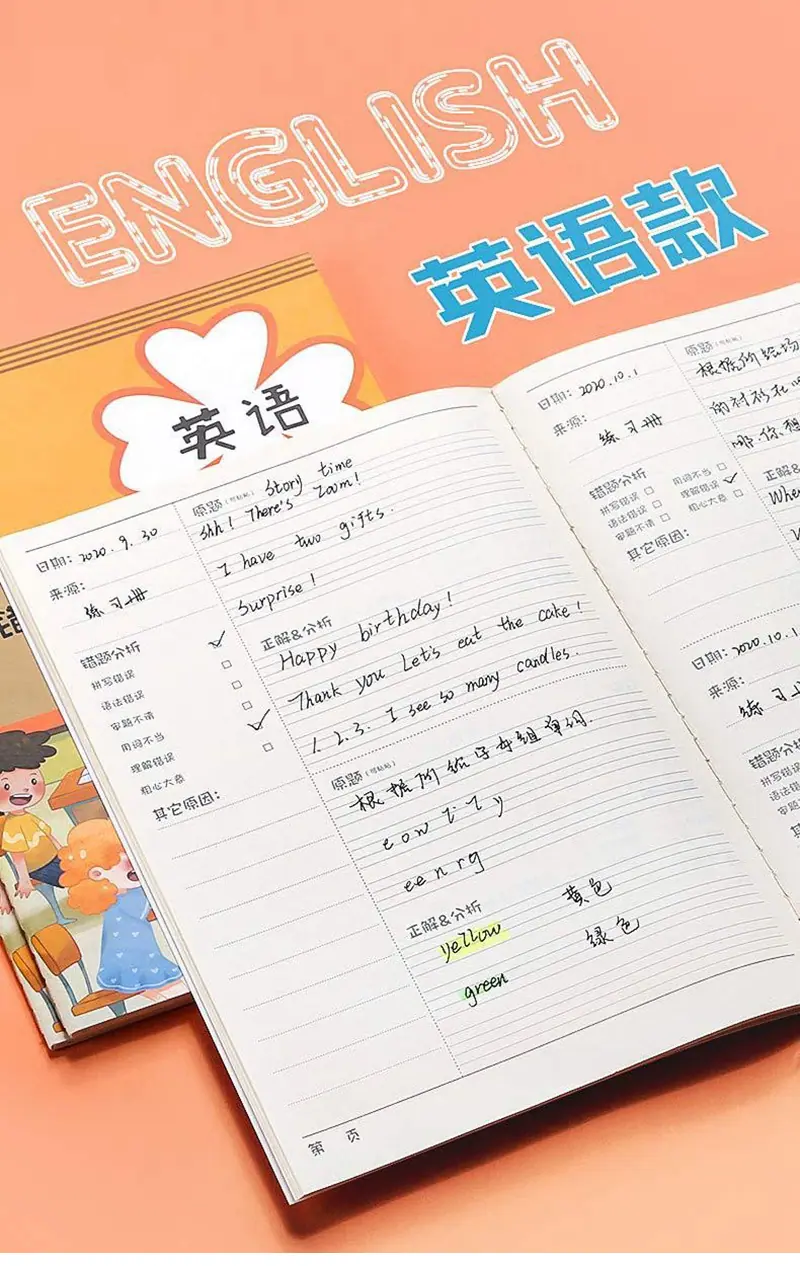 ENGLISH
英语款
英语
错
日期: 2020.9.30
来源:
练习册
错题分析
拼写错误
语法错误
审题不清
用词不当
理解错误
粗心大意
其它原因:
原题(可粘贴) Story time
Shh! There's Zoom!
I have two gifts.
Surprise!
正解&分析
Happy birthday!
Thank you Let's eat the cake!
1. 2. 3. I see so many candles.
原题(可粘贴)
根据所给字母组单词.
e o w
e e n r g
正解&分析
yellow 黄色
green 绿色
第 页
日期: 2020.10.1
来源:
练习册
错题分析
拼写错误 用词不当
语法错误 理解错误
审题不清 粗心大意
其它原因:
原题(可粘贴)
根据所给场
的衬衫和
哪.你想
正解&
Whe
日期: 2020.10.1
来源:
练习
错题分析
拼写错误
语法错
审题